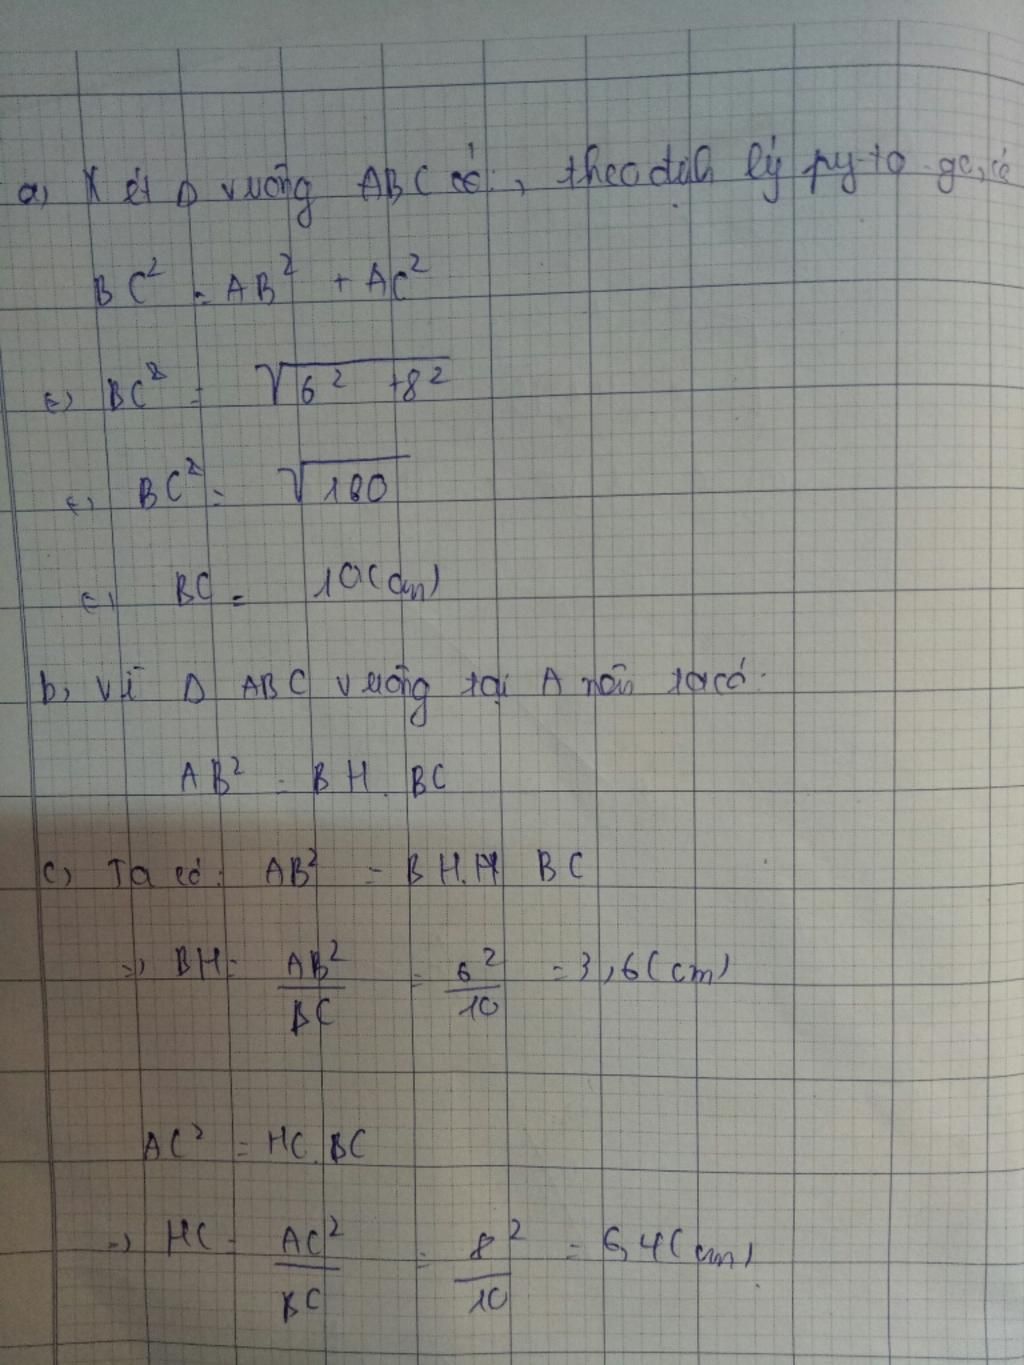 a, Xét Δ vuông ABC có:, theo định lý py-ta-go, có
BC² = AB² + AC²
(=) BC² = √6² +8²
(=) BC² = √100
(=) BC = 10(cm)
b, Vì Δ ABC vuông tại A nên ta có:
AB² = BH. BC
c, Ta có: AB² = BH. BC
=> BH = AB²/BC = 6²/10 = 3,6(cm)
AC² = HC.BC
=> HC = AC²/BC = 8²/10 = 6,4(cm)